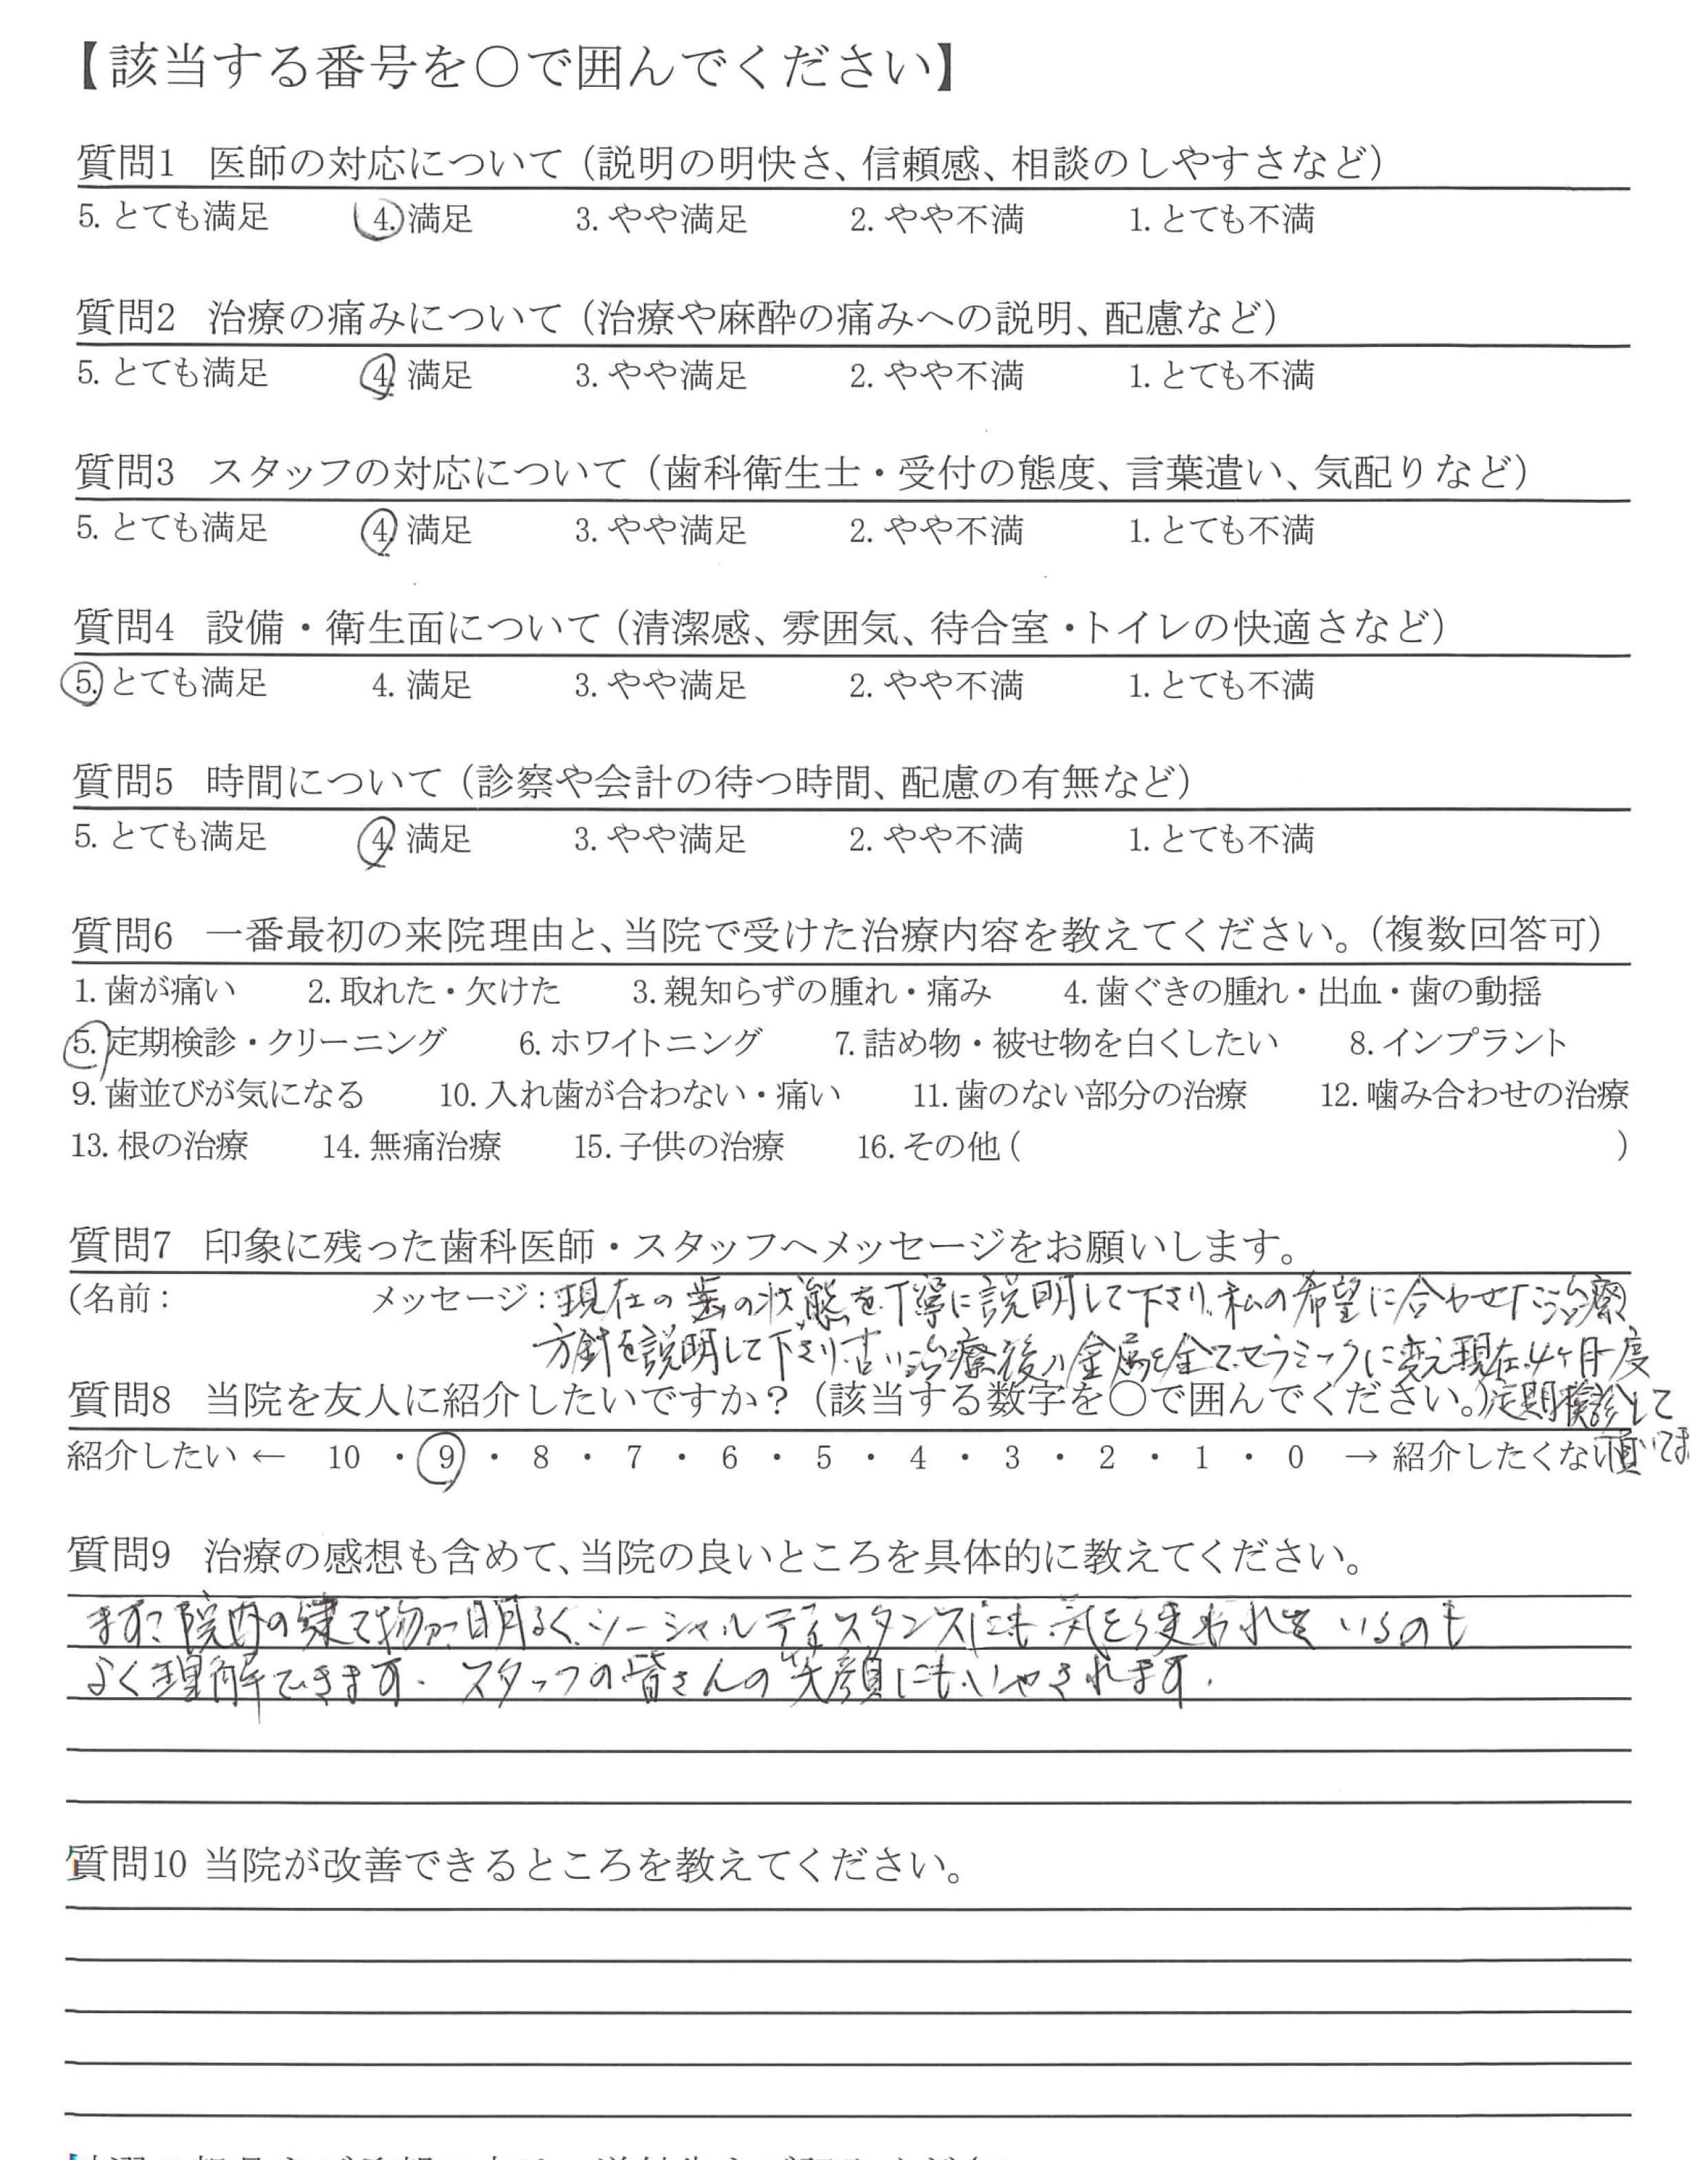 【該当する番号を○で囲んでください】
質問1 医師の対応について（説明の明快さ、信頼感、相談のしやすさなど）
5. とても満足 4. 満足 3. やや満足 2. やや不満 1. とても不満
質問2 治療の痛みについて（治療や麻酔の痛みへの説明、配慮など）
5. とても満足 4. 満足 3. やや満足 2. やや不満 1. とても不満
質問3 スタッフの対応について（歯科衛生士・受付の態度、言葉遣い、気配りなど）
5. とても満足 4. 満足 3. やや満足 2. やや不満 1. とても不満
質問4 設備・衛生面について（清潔感、雰囲気、待合室・トイレの快適さなど）
5. とても満足 4. 満足 3. やや満足 2. やや不満 1. とても不満
質問5 時間について（診察や会計の待つ時間、配慮の有無など）
5. とても満足 4. 満足 3. やや満足 2. やや不満 1. とても不満
質問6 一番最初の来院理由と、当院で受けた治療内容を教えてください。（複数回答可）
1. 歯が痛い 2. 取れた・欠けた 3. 親知らずの腫れ・痛み 4. 歯ぐきの腫れ・出血・歯の動揺
5. 定期検診・クリーニング 6. ホワイトニング 7. 詰め物・被せ物を白くしたい 8. インプラント
9. 歯並びが気になる 10. 入れ歯が合わない・痛い 11. 歯のない部分の治療 12. 噛み合わせの治療
13. 根の治療 14. 無痛治療 15. 子供の治療 16. その他（ ）
質問7 印象に残った歯科医師・スタッフへメッセージをお願いします。
（名前： メッセージ：現在の歯の状態を丁寧に説明して下さり、私の希望に合わせた治療
方針を説明して下さり、古い治療後の金属を全て、セラミックに変え現在、4ヶ月一度
質問8 当院を友人に紹介したいですか？（該当する数字を○で囲んでください。）定期検診して
紹介したい ← 10 ・ 9 ・ 8 ・ 7 ・ 6 ・ 5 ・ 4 ・ 3 ・ 2 ・ 1 ・ 0 → 紹介したくない 頂いてま
質問9 治療の感想も含めて、当院の良いところを具体的に教えてください。
まず、院内の建て物が明るく、ソーシャルディスタンスにも、気を使われているのも
よく理解できます。スタッフの皆さんの笑顔にも、いやされます。
質問10 当院が改善できるところを教えてください。